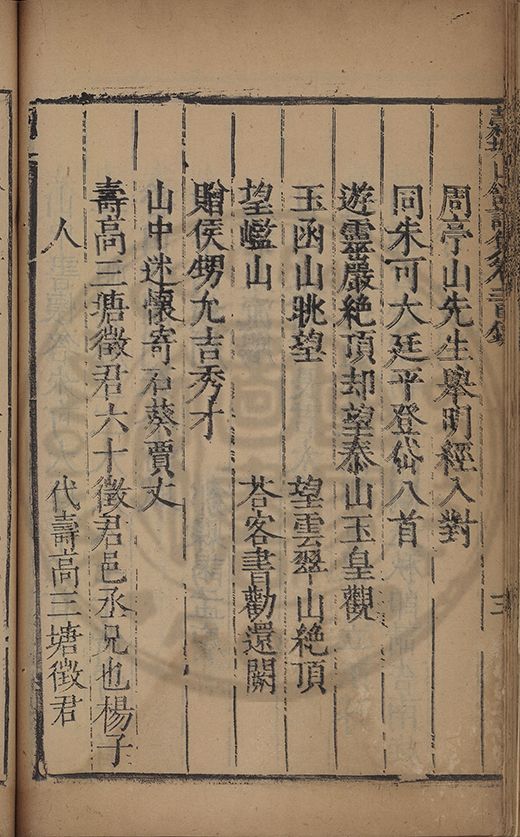 周亭山先生舉明經入對
同朱可大廷平登岱八首
遊靈巖絕頂却望泰山玉皇觀
玉函山眺望　望雲翠山絕頂
望山　荅客書勸還闕
贈侯甥允吉秀才
山中述懷寄石葵賈丈
壽高三塘徵君六十徵君邑丞兄也楊子
人　代壽高三塘徵君
三